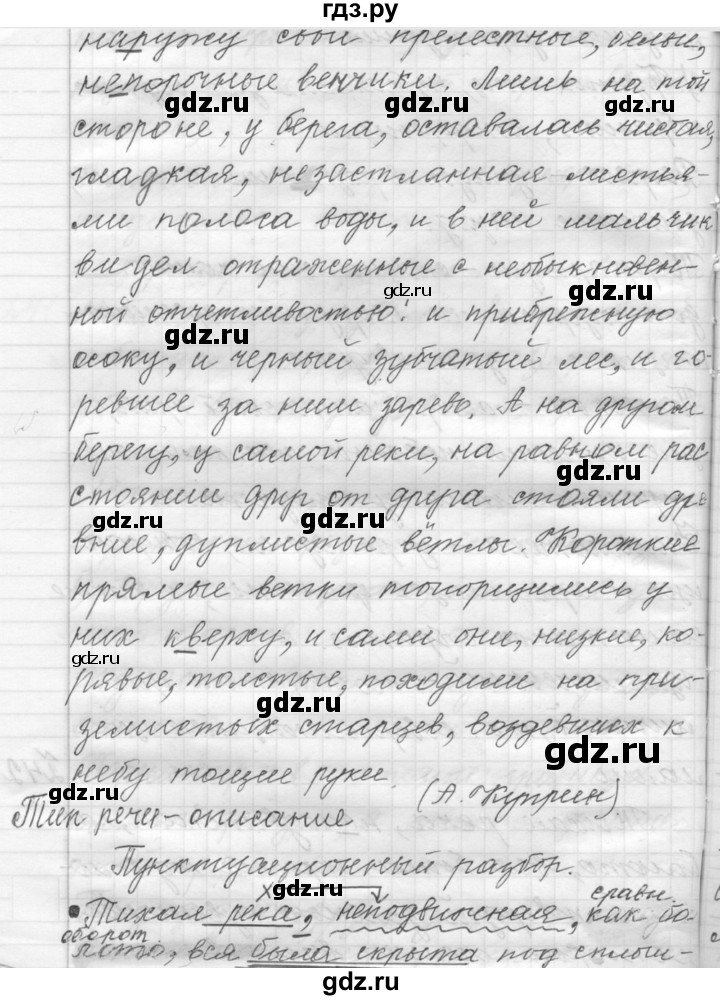 гдз.ру
наружу свои прелестные, белые,
непорочные венчики. Лишь на той
gdz.ru gdz.ru gdz.ru
стороне, у берега, оставалась чистая,
гладкая, незастланная листья-
ми полоса воды, и в ней мальчик
видел отраженные с необыкновен-
gdz.ru gdz.ru
ной отчетливостью: и прибрежную
gdz.ru
осоку, и черный зубчатый лес, и го-
ревшее за ним зарево. А на другом
берегу, у самой реки, на равном рас
gdz.ru
стоянии друг от друга стояли дре
gdz.ru gdz.ru
вние, дуплистые вётлы. Короткие
gdz.ru
прямые ветки топорщились у
них кверху, и сами они, низкие, ко-
gdz.ru
рявые, толстые, походили на при-
gdz.ru
земистых старцев, воздевших к
gdz.ru
небу тощие руки.
gdz.ru
(А. Куприн).
Тип речи - описание
Пунктуационный разбор.
х gdz.ru сравн.
Тихая река, неподвижная, как бо-
оборот
лото, вся была скрыта под сплош-
gdz.ru gdz.ru